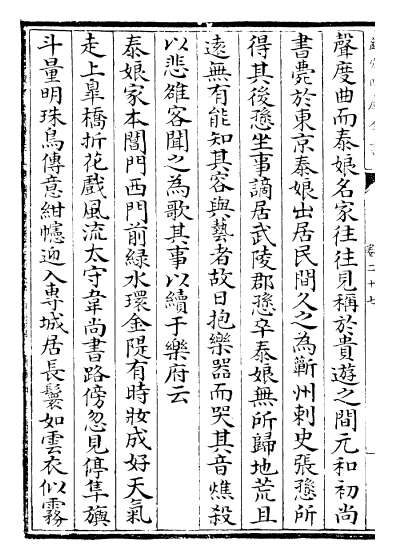 聲度曲而泰娘名家往往見稱於貴遊之間元和初尚
書薨於東京泰娘出居民間久之為蘄州刺史張愻所
得其後愻坐事謫居武陵郡愻卒泰娘無所歸地荒且
遠無有能知其容與藝者故日抱樂器而哭其音燋殺
以悲雒客聞之為歌其事以續于樂府云
泰娘家本閶門西門前綠水環金隄有時妝成好天氣
走上皐橋折花戲風流太守韋尚書路傍忽見停隼旟
斗量明珠鳥傳意紺幰迎入專城居長鬟如雲衣似霧